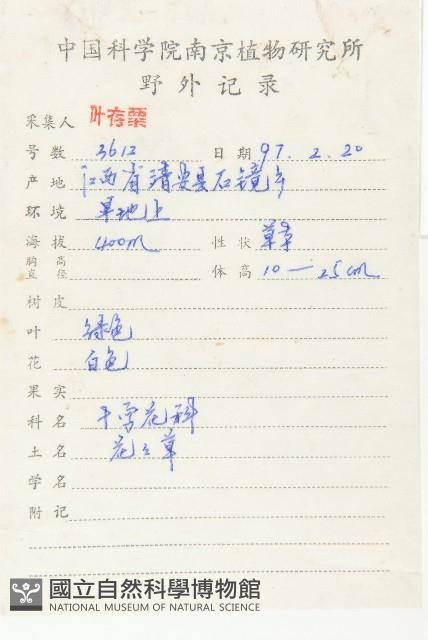 中国科学院南京植物研究所
野外记录
采集人 叶存粟
号数 3612 日期 97. 2. 20
产地 江西省靖安县石镜乡
环境 草地上
海拔 400m 性状 草本
胸高直径 体高 10—25cm
树皮
叶 绿色
花 白色
果实
科名
土名
学名
附记
國立自然科學博物館
NATIONAL MUSEUM OF NATURAL SCIENCE